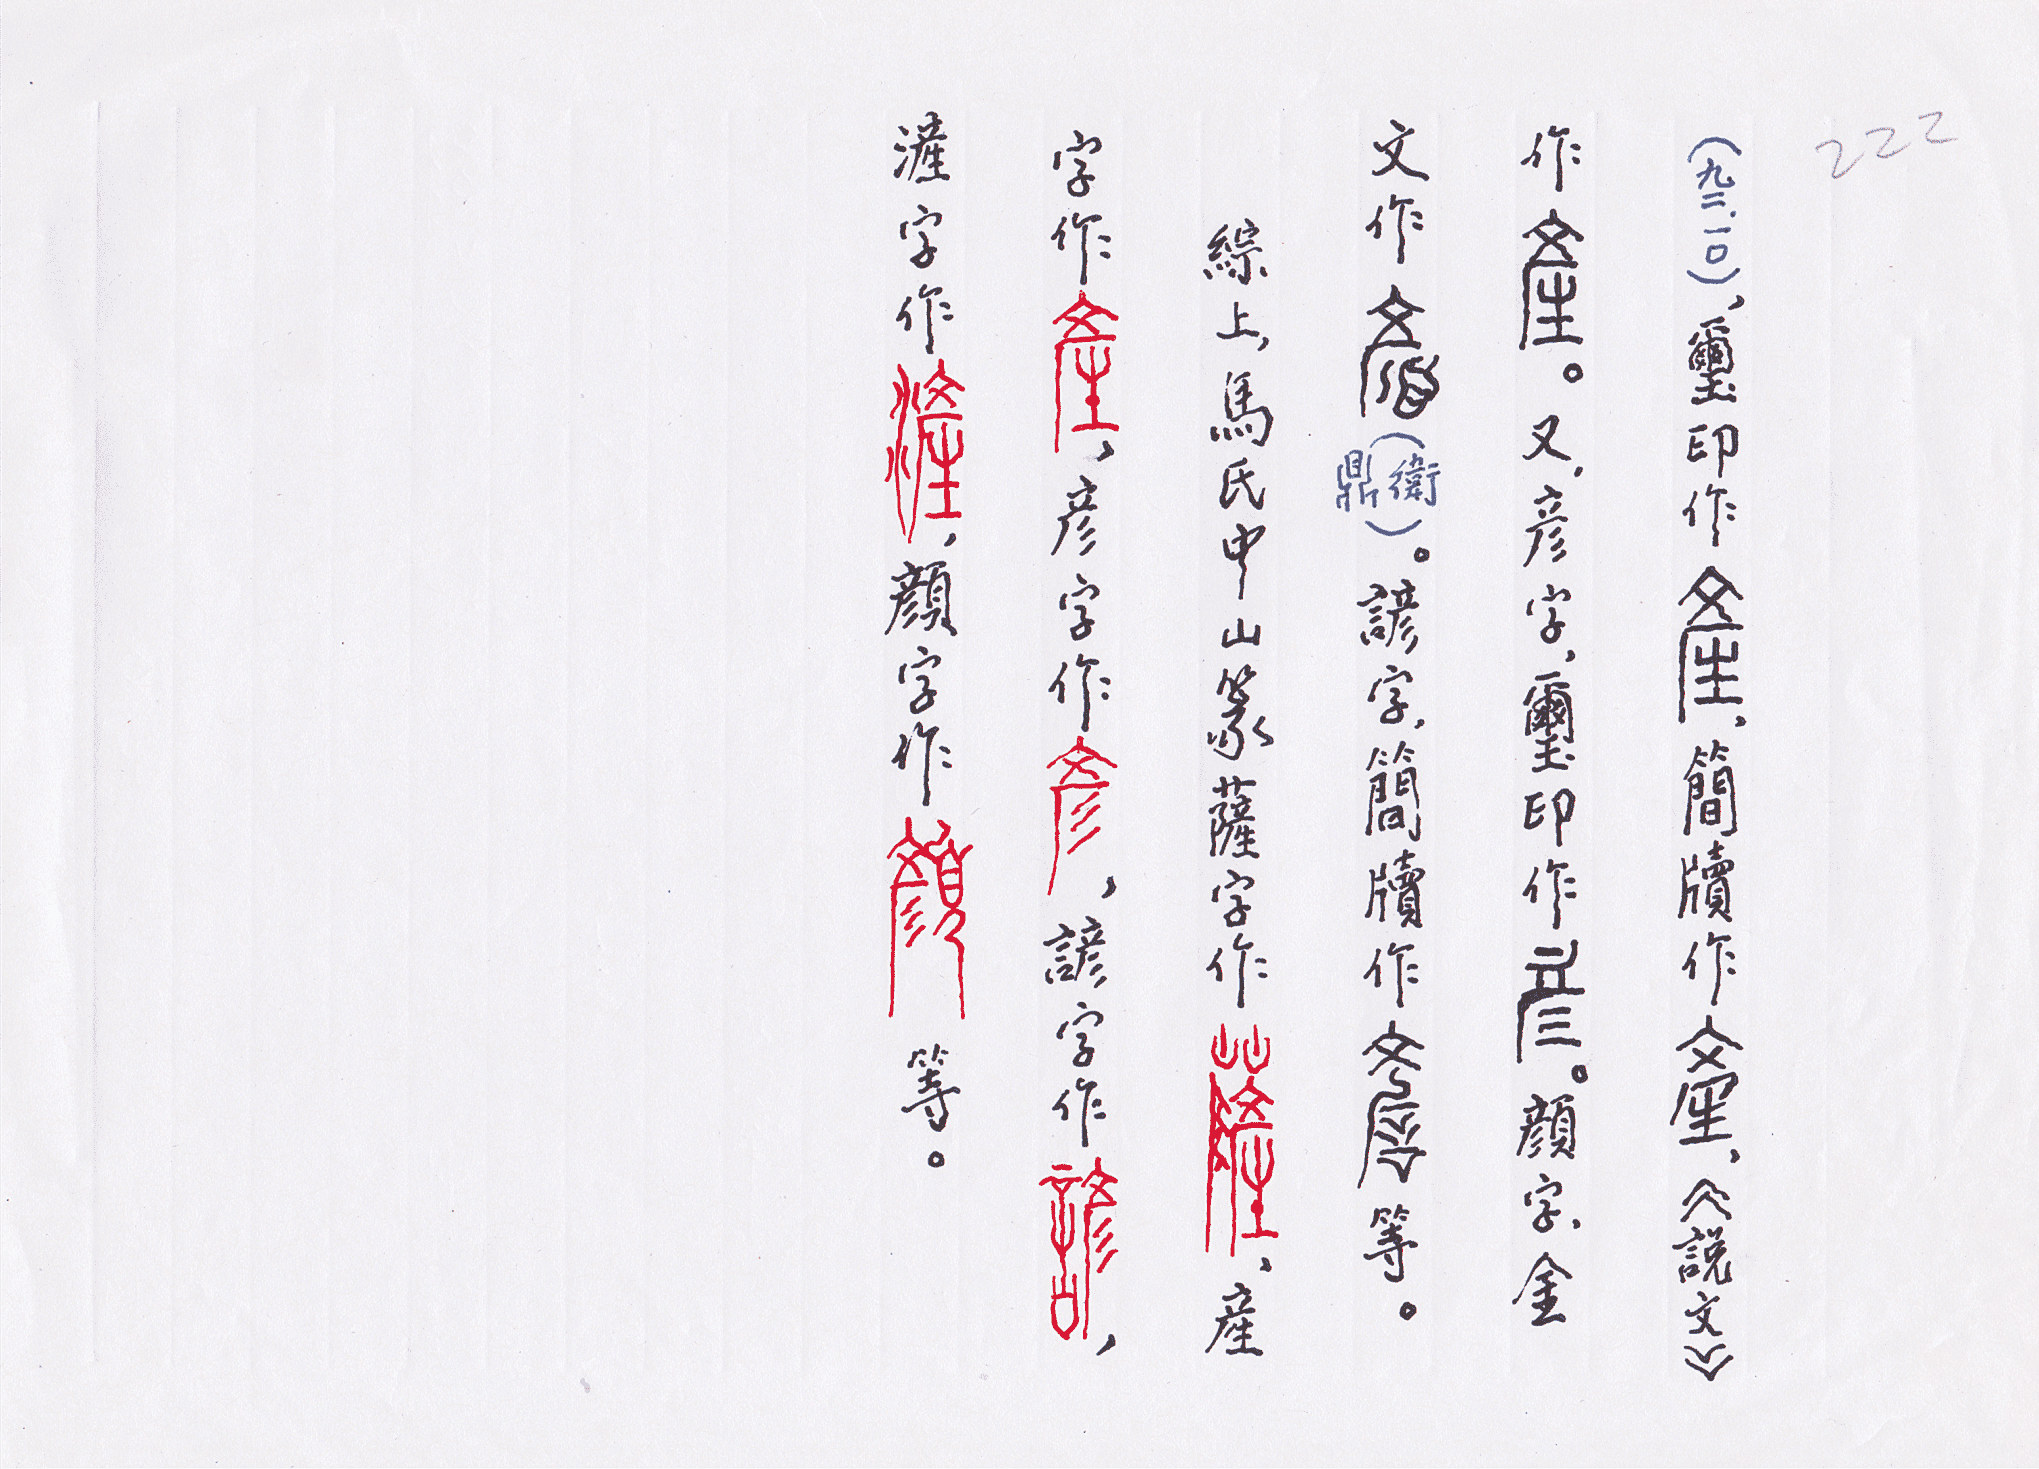 222
(九二.一〇)，璽印作產，簡牘作產，《說文》
作產。又，彥字，璽印作彥。顏字，金
文作顏(衛鼎)。諺字，簡牘作諺等。
綜上，馬氏中山篆薩字作薩，產
字作產，彥字作彥，諺字作諺，
滻字作滻，顏字作顏等。